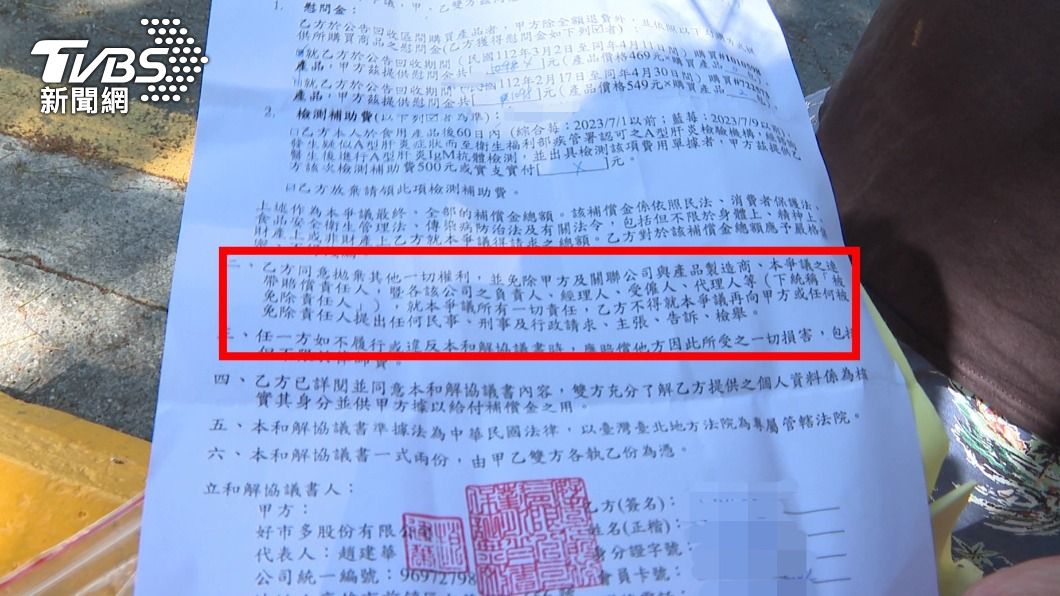 TVBS
新聞網
1. 慰問金：
乙方於公告回收區間購買產品者，甲方除全額退費外，並依照以下
供所購買商品之慰問金(乙方獲得慰問金如下列☑者)：
☑就乙方於公告回收期間(民國112年3月2日至同年4月11日間)購買
產品，甲方茲提供慰問金共[ ]元(產品價格469元×購買產品
112年2月17日至同年4月30日間)，購買
產品，甲方茲提供慰問金共[ ]元(產品價格549元×購買產品
2. 檢測補助費(以下列☑者為準)：
☐乙方本人於食用產品後60日內(綜合莓：2023/7/1以前；藍莓：2023/7/9以前)
發生疑似A型肝炎症狀而至衛生福利部疾管署認可之A型肝炎檢驗機構，
醫生後進行A型肝炎IgM抗體檢測，並出具檢測該項費用單據者，甲方茲提供乙
方該次檢測補助費500元或實支實付[ x ]元。
☑乙方放棄請領此項檢測補助費。
上述作為本爭議最終、全部的補償金總額。該補償金係依照民法、消費者保護法、
食品安全衛生管理法、傳染病防治法及有關法令，包括但不限於身體上、精神上、
財產上或非財產上乙方就本爭議得請求之總額。乙方對於該補償金總額應予嚴格
二、乙方同意拋棄其他一切權利，並免除甲方及關聯公司與產品製造商、本爭議之連
帶賠償責任人，暨各該公司之負責人、經理人、受僱人、代理人等(下統稱「被
免除責任人」)，就本爭議所有一切責任，乙方不得就本爭議再向甲方或任何被
免除責任人提出任何民事、刑事及行政請求、主張、告訴、檢舉。
三、任一方如不履行或違反本和解協議書時，應賠償他方因此所受之一切損害，包括
但不限於律師費。
四、乙方已詳閱並同意本和解協議書內容，雙方充分了解乙方提供之個人資料係為核
實其身分並供甲方據以給付補償金之用。
五、本和解協議書準據法為中華民國法律，以臺灣臺北地方法院為專屬管轄法院。
六、本和解協議書一式兩份，由甲乙雙方各執乙份為憑。
立和解協議書人：
甲方：
乙方(簽名)：
好市多股份有限公
姓名(正楷)：
代表人：趙建華
身分證字號：
公司統一編號：96972798
會員卡號：